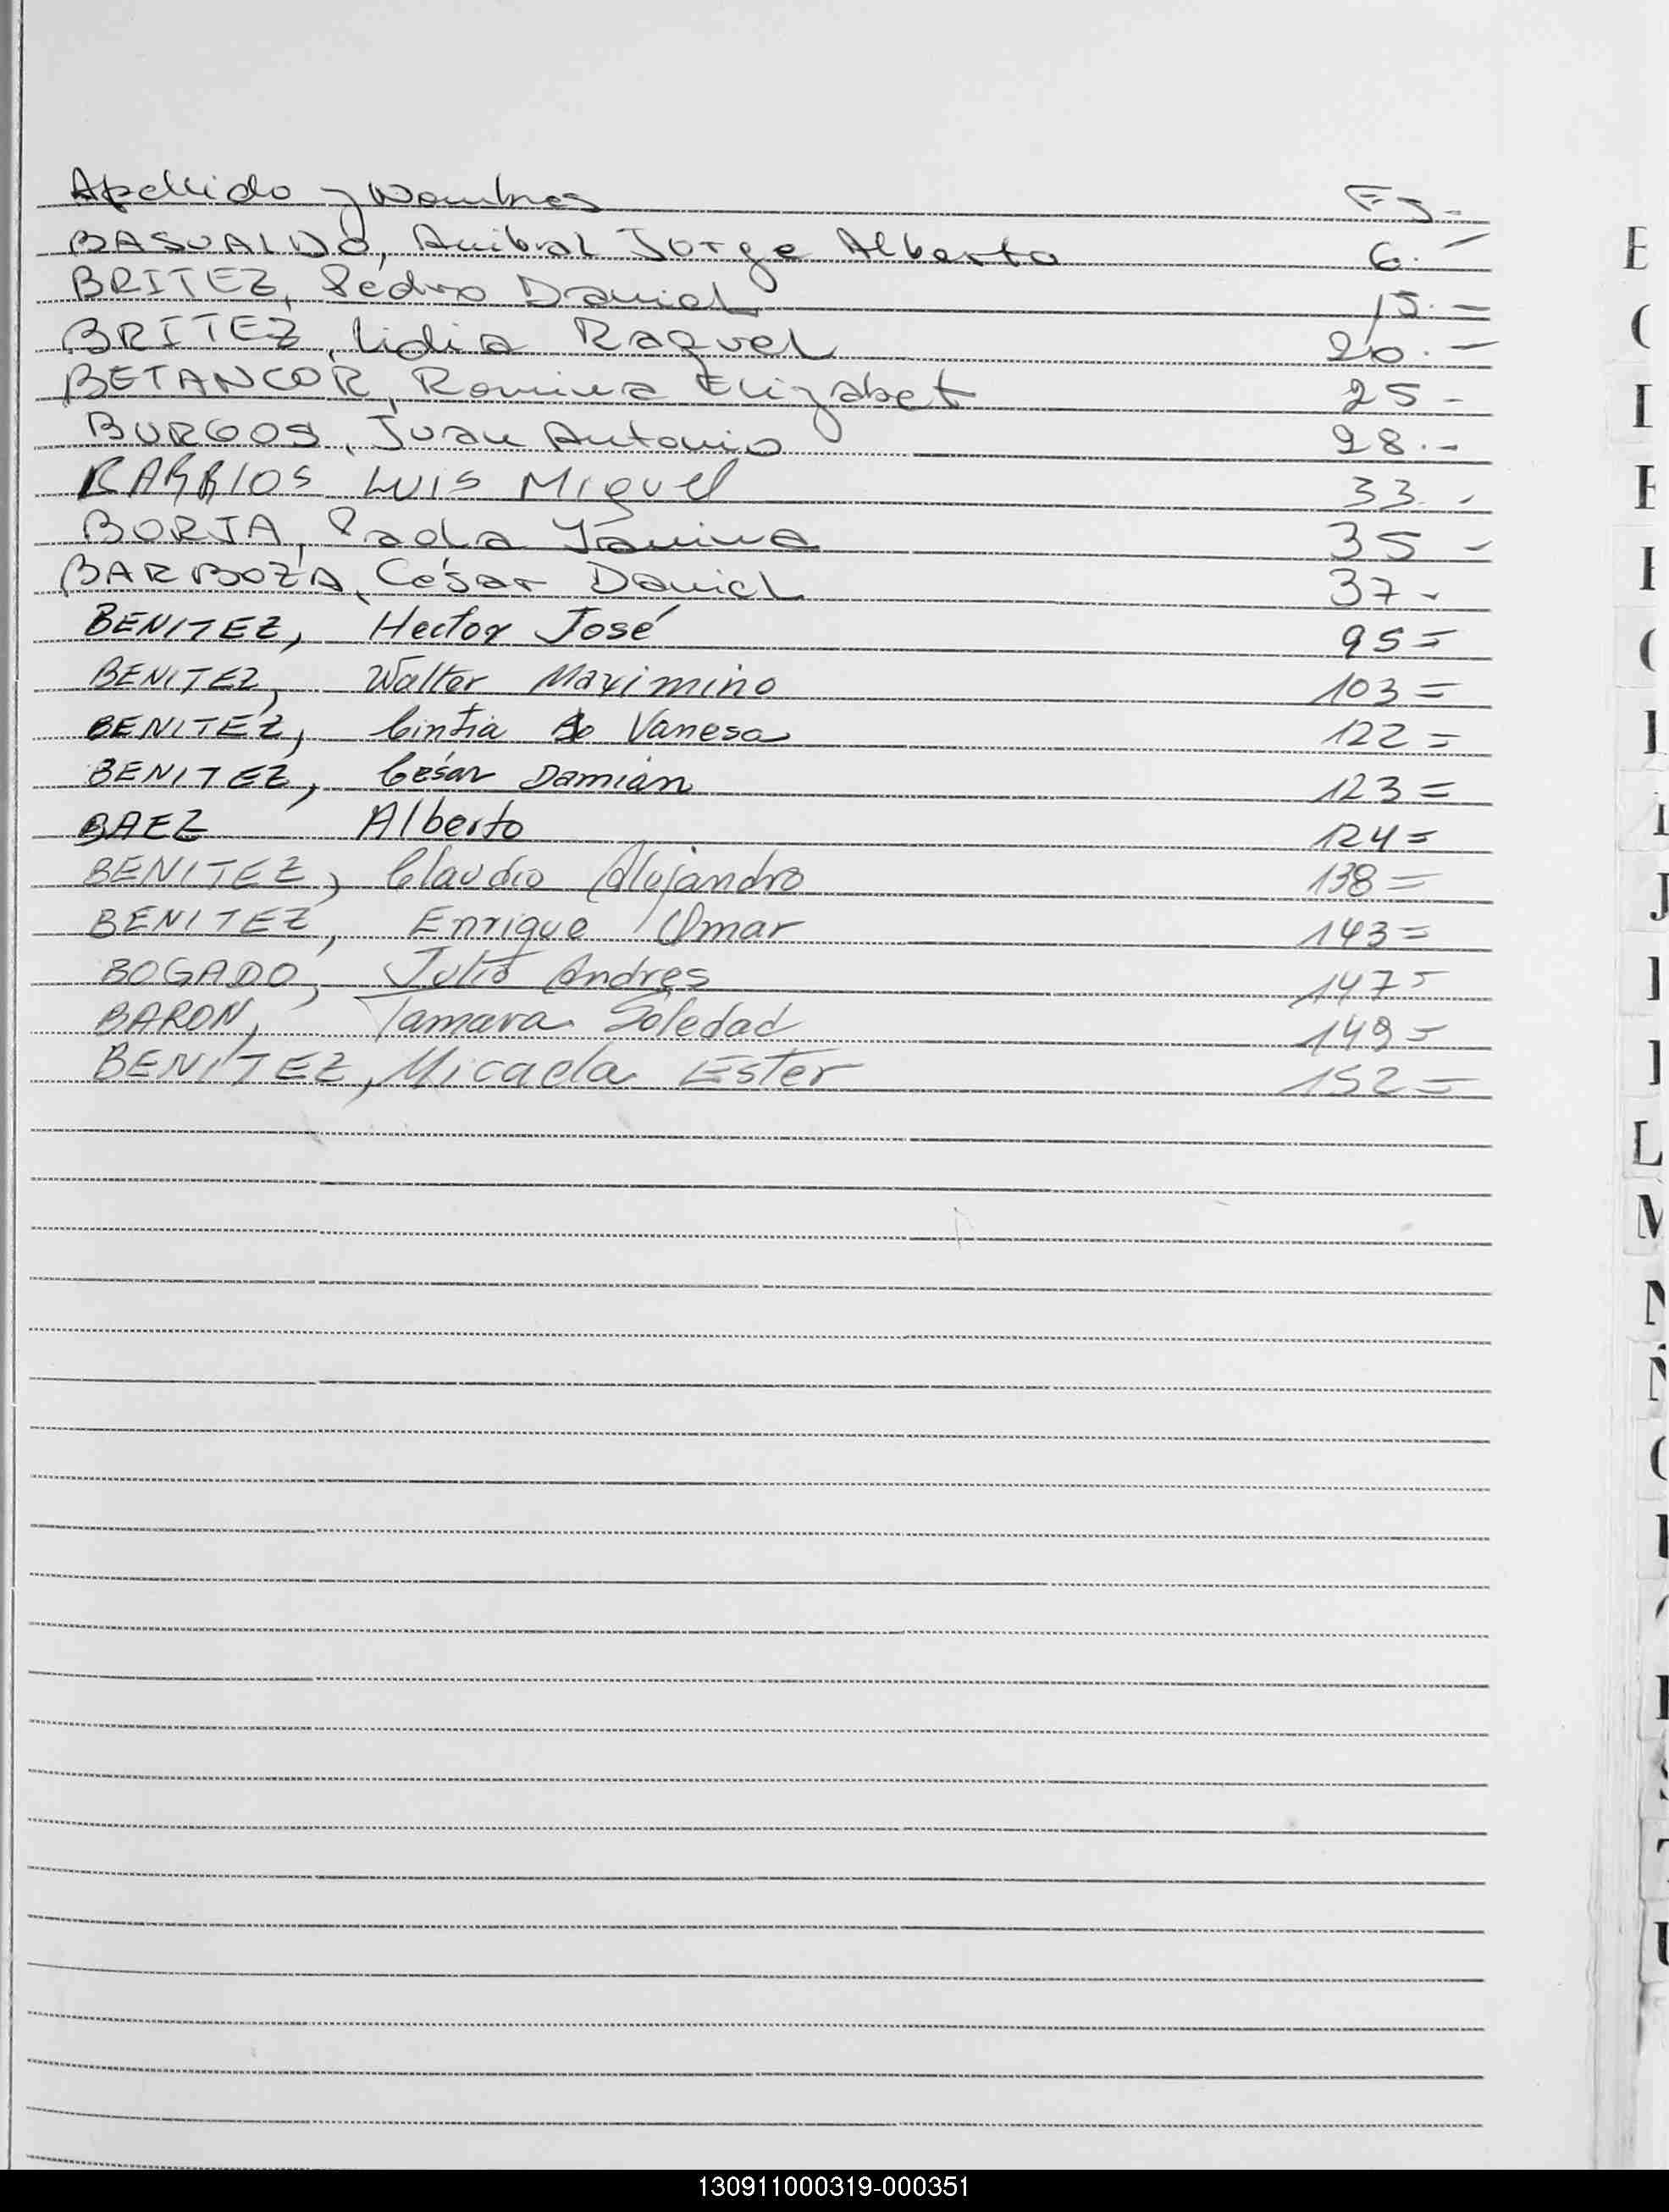 Apellido y Nombres FJ.-
BASUALDO, Anibal Jorge Alberto 6.-
BRITEZ, Pedro Daniel 15.-
BRITEZ, Lidia Raquel 20.-
BETANCOR, Romina Elizabet 25-
BURGOS, Juan Antonio 28.-
BARRIOS Luis Miguel 33.-
BORJA, Paola Yanina 35-
BARBOZA, César Daniel 37-
BENITEZ, Hector José 95=
BENITEZ, Walter Maximino 103=
BENITEZ, Cintia Vanesa 122=
BENITEZ, César Damián 123=
BAEZ Alberto 124=
BENITEZ, Claudio Alejandro 138=
BENITEZ, Enrique Omar 143=
BOGADO, Julio Andres 147=
BARON, Tamara Soledad 149=
BENITEZ, Micaela Ester 152=
J
M
U
130911000319-000351